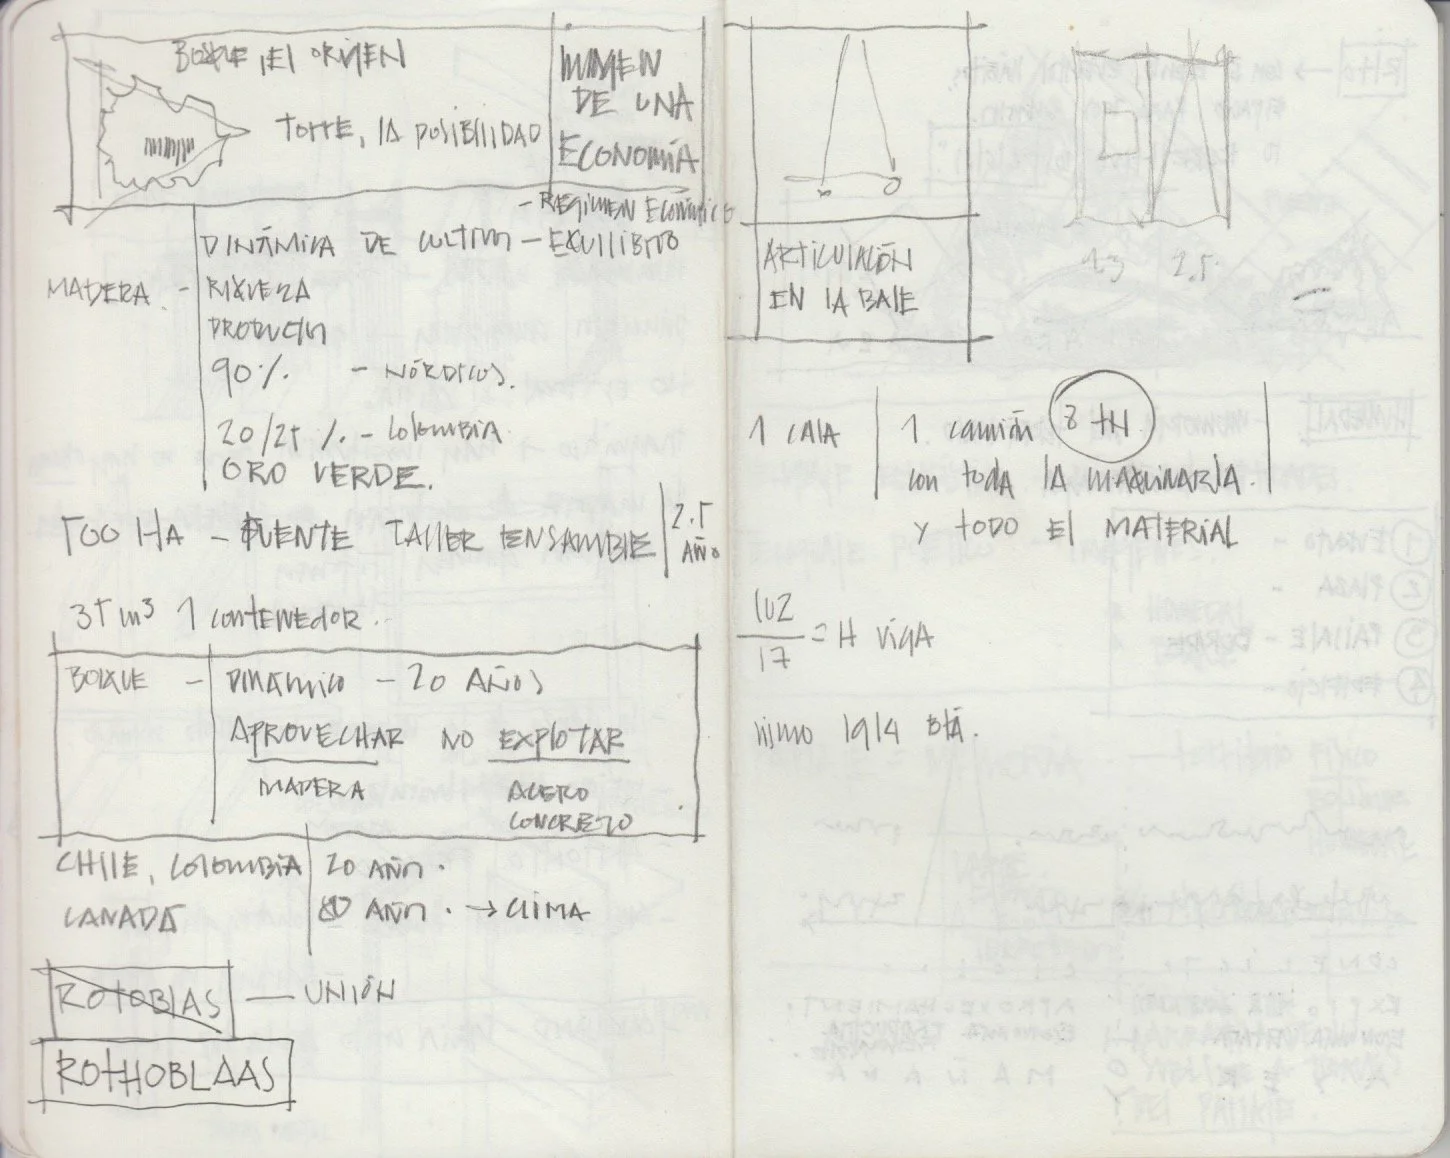 BOSQUE, EL ORIGEN
TORRE, LA POSIBILIDAD
IMAGEN
DE UNA
ECONOMÍA
- REGIMEN ECONÓMICO
DINÁMICA DE CULTIVO - EQUILIBRIO
MADERA - RIQUEZA
PRODUCCIÓN
90% - NÓRDICOS.
20/25 % - COLOMBIA
ORO VERDE.
500 HA - PUENTE TALLER ENSAMBLE
2.5
AÑO
35 m³ 1 CONTENEDOR.
BOSQUE - DINÁMICO - 20 AÑOS
APROVECHAR NO EXPLOTAR
MADERA
ACERO
CONCRETO
CHILE, COLOMBIA 20 AÑOS.
CANADÁ 80 AÑOS. → CLIMA
ROTOBLAS — UNIÓN
ROTHOBLAAS
ARTICULACIÓN
EN LA BASE
1.3 2.5
1 CASA 1 camión 8 tN
con toda la maquinaria.
y todo el MATERIAL
LUZ
17
= H VIGA
1914 BTÁ.